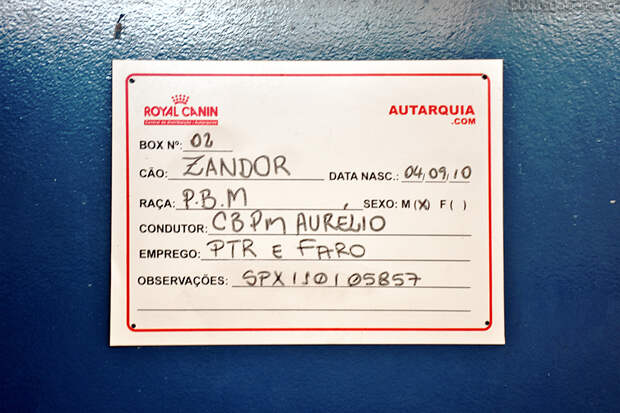 ROYAL CANIN
AUTARQUIA
.COM
BOX Nº: 02
CÃO: ZANDOR DATA NASC.: 04/09/10
RAÇA: P.B.M SEXO: M (X) F ( )
CONDUTOR: CBPM AURÉLIO
EMPREGO: PTR E FARO
OBSERVAÇÕES: SPX110105857